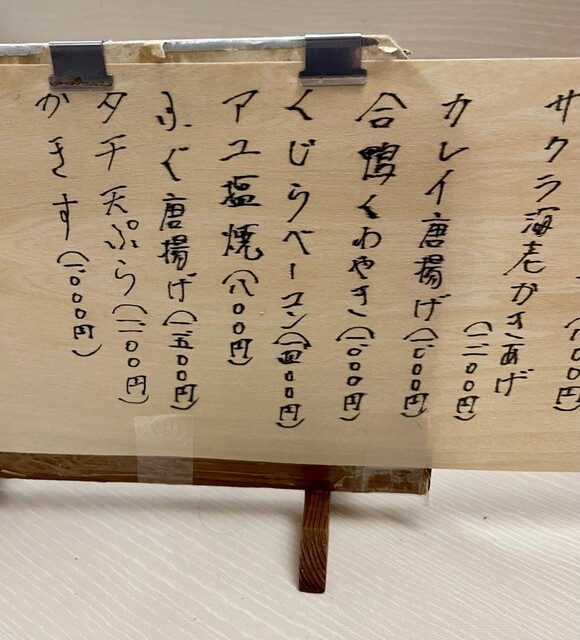 サクラ海老かきあげ
(一、二〇〇円)
カレイ唐揚げ(一、〇〇〇円)
合鴨くわやき(一、〇〇〇円)
くじらベーコン(一、四〇〇円)
アユ塩焼(八〇〇円)
ふぐ唐揚げ(一、五〇〇円)
タチ天ぷら(一、二〇〇円)
かきす(一、〇〇〇円)